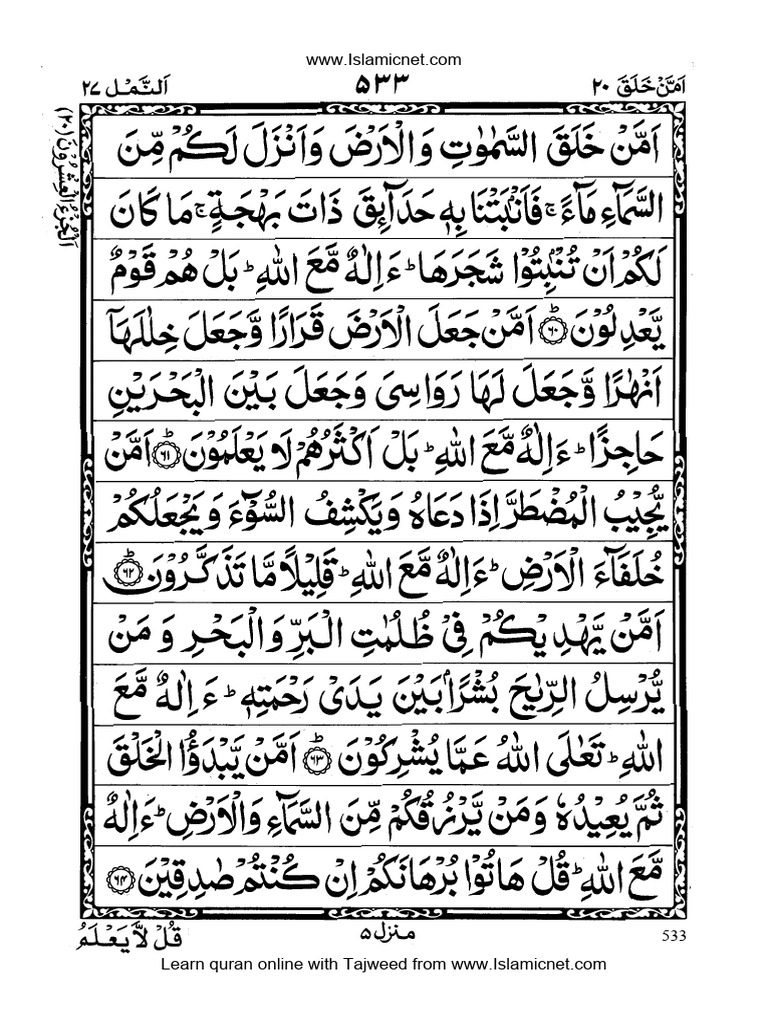 www.Islamicnet.com
اَمَّنْ خَلَقَ ۲۰
۵۳۳
اَلنَّمْل ۲۷
اَلْجُزْءُ الْعِشْرُوْنَ (۲۰)
اَمَّنْ خَلَقَ السَّمٰوٰتِ وَالْاَرْضَ وَاَنْزَلَ لَكُمْ مِّنَ
السَّمَآءِ مَآءً ۚ فَاَنْۢبَتْنَا بِهٖ حَدَآئِقَ ذَاتَ بَهْجَةٍ ۚ مَا كَانَ
لَكُمْ اَنْ تُنْۢبِتُوْا شَجَرَهَا ؕ ءَاِلٰهٌ مَّعَ اللّٰهِ ؕ بَلْ هُمْ قَوْمٌ
يَّعْدِلُوْنَ ؕ‏﴿۶۰﴾ اَمَّنْ جَعَلَ الْاَرْضَ قَرَارًا وَّجَعَلَ خِلٰلَهَاۤ
اَنْهٰرًا وَّجَعَلَ لَهَا رَوَاسِىَ وَجَعَلَ بَيْنَ الْبَحْرَيْنِ
حَاجِزًا ؕ ءَاِلٰهٌ مَّعَ اللّٰهِ ؕ بَلْ اَكْثَرُهُمْ لَا يَعْلَمُوْنَ ؕ‏﴿۶۱﴾ اَمَّنْ
يُّجِيْبُ الْمُضْطَرَّ اِذَا دَعَاهُ وَيَكْشِفُ السُّوْٓءَ وَيَجْعَلُكُمْ
خُلَفَآءَ الْاَرْضِ ؕ ءَاِلٰهٌ مَّعَ اللّٰهِ ؕ قَلِيْلًا مَّا تَذَكَّرُوْنَ ؕ‏﴿۶۲﴾
اَمَّنْ يَّهْدِيْكُمْ فِىْ ظُلُمٰتِ الْبَرِّ وَالْبَحْرِ وَمَنْ
يُّرْسِلُ الرِّيٰحَ بُشْرًۢا بَيْنَ يَدَىْ رَحْمَتِهٖ ؕ ءَاِلٰهٌ مَّعَ
اللّٰهِ ؕ تَعٰلَى اللّٰهُ عَمَّا يُشْرِكُوْنَ ؕ‏﴿۶۳﴾ اَمَّنْ يَّبْدَؤُا الْخَلْقَ
ثُمَّ يُعِيْدُهٗ وَمَنْ يَّرْزُقُكُمْ مِّنَ السَّمَآءِ وَالْاَرْضِ ؕ ءَاِلٰهٌ
مَّعَ اللّٰهِ ؕ قُلْ هَاتُوْا بُرْهَانَكُمْ اِنْ كُنْتُمْ صٰدِقِيْنَ ‏﴿۶۴﴾
533
منزل ۵
قُلْ لَّا يَعْلَمُ
Learn quran online with Tajweed from www.Islamicnet.com